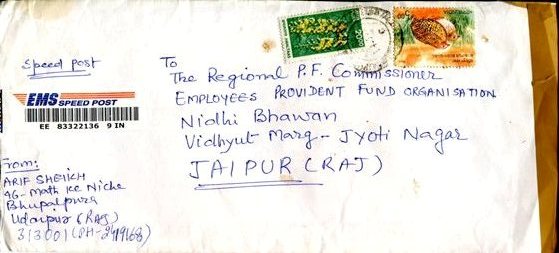 Speed post
To
The Regional P.F. Commissioner
EMPLOYEES PROVIDENT FUND ORGANISATION
Nidhi Bhawan
Vidhyut Marg - Jyoti Nagar
JAIPUR (RAJ)
EMS SPEED POST
EE 83322136 9 IN
From:
ARIF SHEIKH
46- Math ke Niche
Bhupalpura
Udaipur (RAJ)
313001 (PH-2419168)